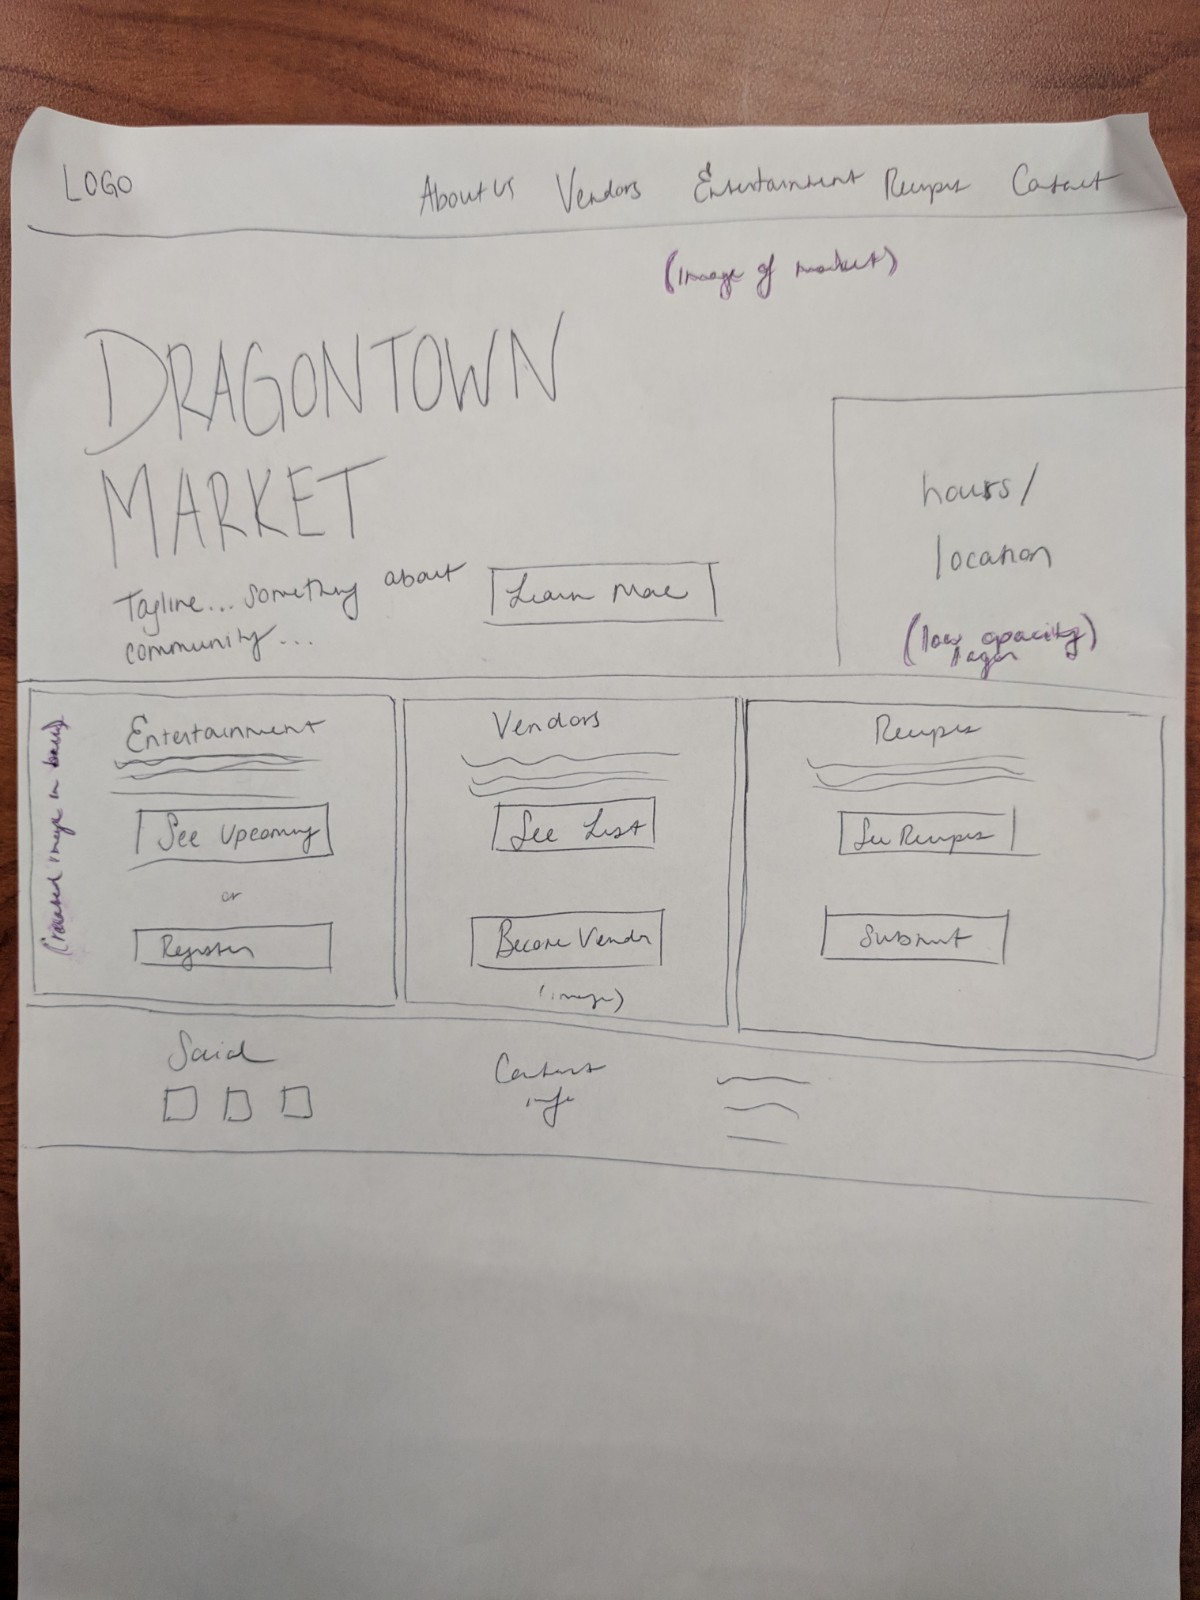 LOGO
About Us Vendors Entertainment Recipes Contact
(image of market)
DRAGONTOWN
MARKET
Tagline... something about
community...
Learn More
hours/
location
(low opacity)
Entertainment
See Upcoming
or
Register
Vendors
See List
Become Vendor
(image)
Recipes
See Recipes
Submit
Social
Contact
info